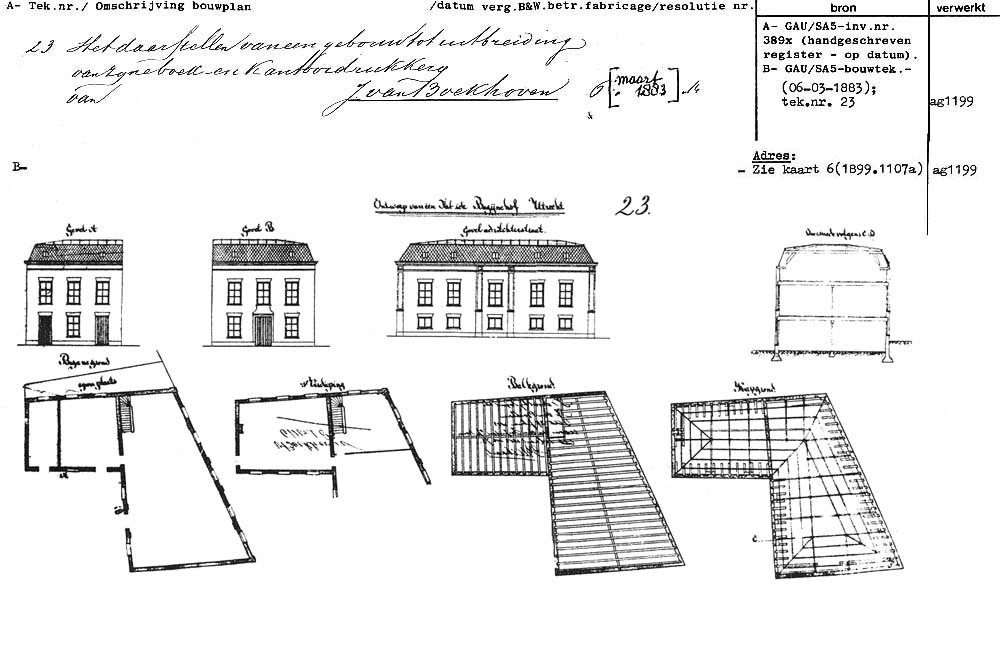 A- Tek.nr./ Omschrijving bouwplan
/datum verg.B&W.betr.fabricage/resolutie nr.
bron
verwerkt
23 Het daarstellen van een gebouw tot uitbreiding
van zyne boek- en Kantoordrukkery
van J. van Boekhoven 6 [maart 1883] 14
A- GAU/SA5-inv.nr.
389x (handgeschreven
register - op datum).
B- GAU/SA5-bouwtek.-
(06-03-1883);
tek.nr. 23
ag1199
Adres:
- Zie kaart 6(1899.1107a)
ag1199
B-
Ontwerp van een Bagijnehof Utrecht
23.
Gevel A
Gevel B
Gevel a/d Achterstraat.
Doorsnede volgens C.D
Begane grond
open plaats
Verdieping
Balkgrond
Kapgrond
A
B